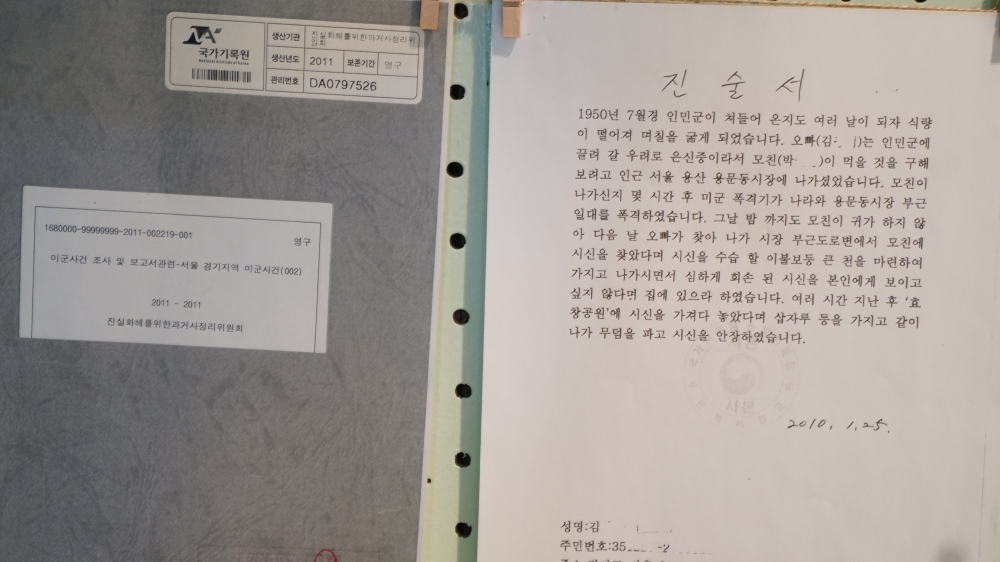 국가기록원
National Archives of Korea
생산기관 진실화해를위한과거사정리위원회
생산년도 2011 보존기간 영구
관리번호 DA0797526
1680000-99999999-2011-002219-001
영구
미군사건 조사 및 보고서관련-서울 경기지역 미군사건(002)
2011 - 2011
진실화해를위한과거사정리위원회
진 술 서
1950년 7월경 인민군이 쳐들어 온지도 여러 날이 되자 식량
이 떨어져 며칠을 굶게 되었습니다. 오빠(김 )는 인민군에
끌려 갈 우려로 은신중이라서 모친(박 )이 먹을 것을 구해
보려고 인근 서울 용산 용문동시장에 나가셨었습니다. 모친이
나가신지 몇 시간 후 미군 폭격기가 나라와 용문동시장 부근
일대를 폭격하였습니다. 그날 밤 까지도 모친이 귀가 하지 않
아 다음 날 오빠가 찾아 나가 시장 부근도로변에서 모친에
시신을 찾았다며 시신을 수습 할 이불보등 큰 천을 마련하여
가지고 나가시면서 심하게 회손 된 시신을 본인에게 보이고
싶지 않다면 집에 있으라 하였습니다. 여러 시간 지난 후 '효
창공원'에 시신을 가져다 놓았다며 삽자루 등을 가지고 같이
나가 무덤을 파고 시신을 안장하였습니다.
사본
2010. 1. 25.
성명:김
주민번호:35 -2